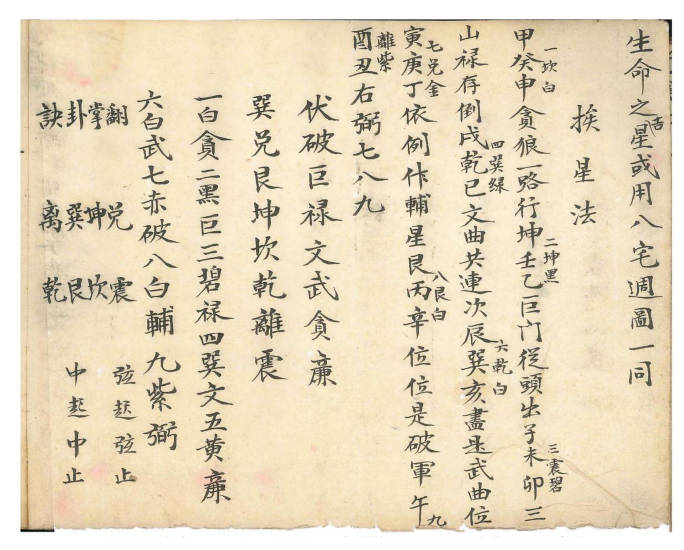 生命之吉星或用八宅週圖一同
挨星法
一坎白 二坤黑 三震碧
甲癸申貪狼一路行坤壬乙巨门從頭出子未卯三
四巽綠 六乾白
山禄存倒戌乾巳文曲共連次辰巽亥盡是武曲位
七兑金 八艮白 九
寅庚丁依例作輔星艮丙辛位位是破軍午
離紫
酉丑右弼七八九
伏破巨禄文武貪廉
巽兑艮坤坎乾離震
一白貪二黑巨三碧禄四巽文五黄廉
六白武七赤破八白輔九紫弼
翻 兑 震 弦起弦止
掌 坤 坎
卦 巽 艮 中起中止
訣 离 乾